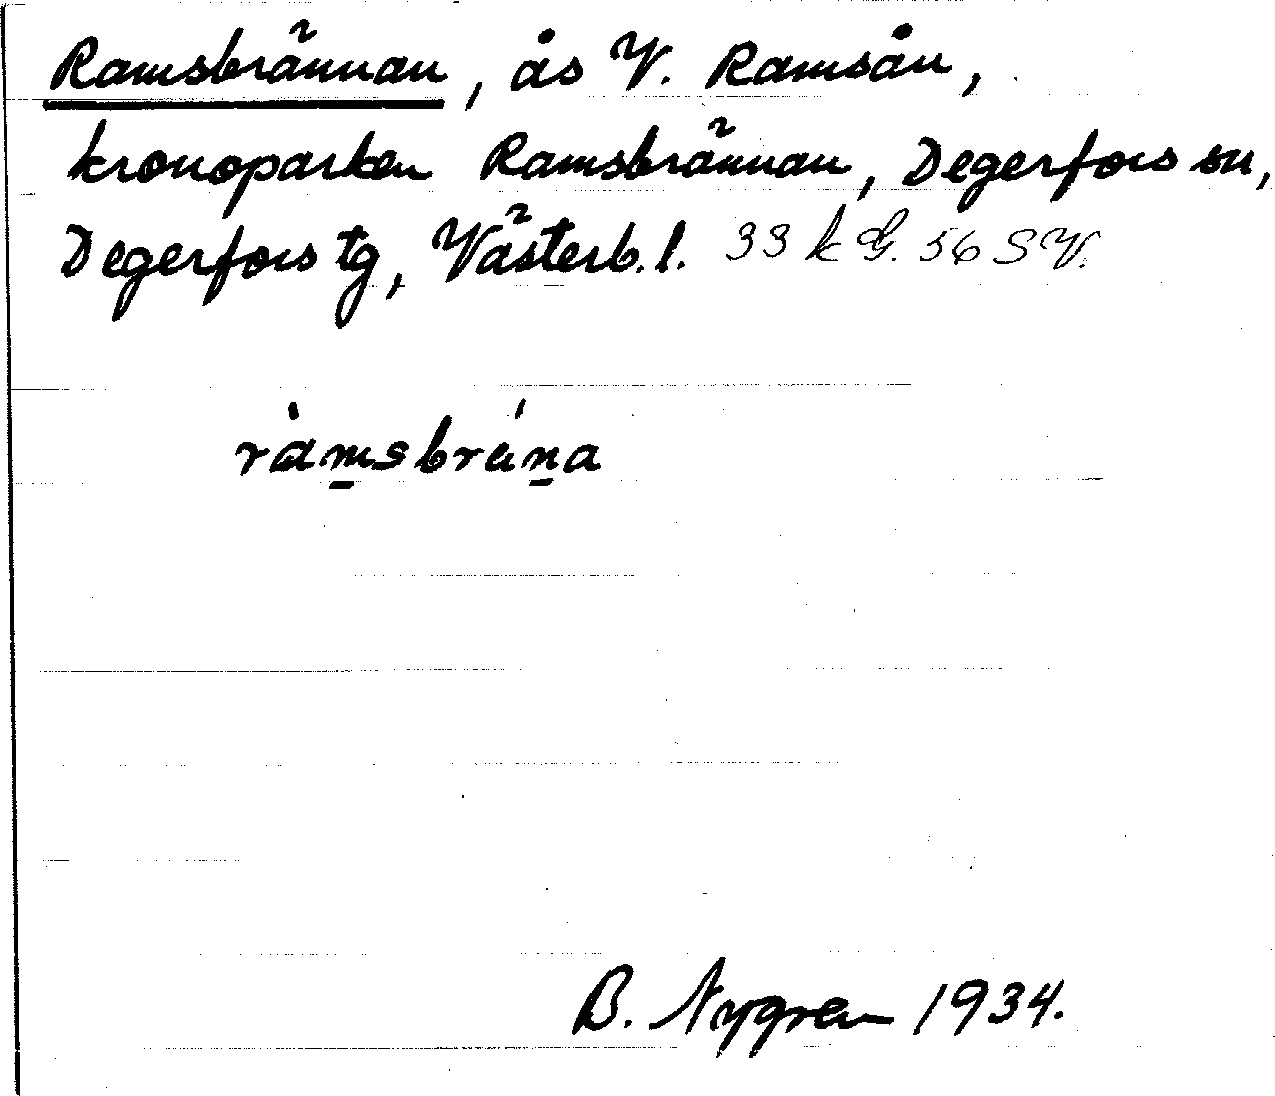 Ramsbrännan, ås V. Ramsån,
kronoparken Ramsbrännan, Degerfors sn,
Degerfors tg, Västerb. l. 33 k G. 56 S V.
ràmsbrána
B. Nygren 1934.